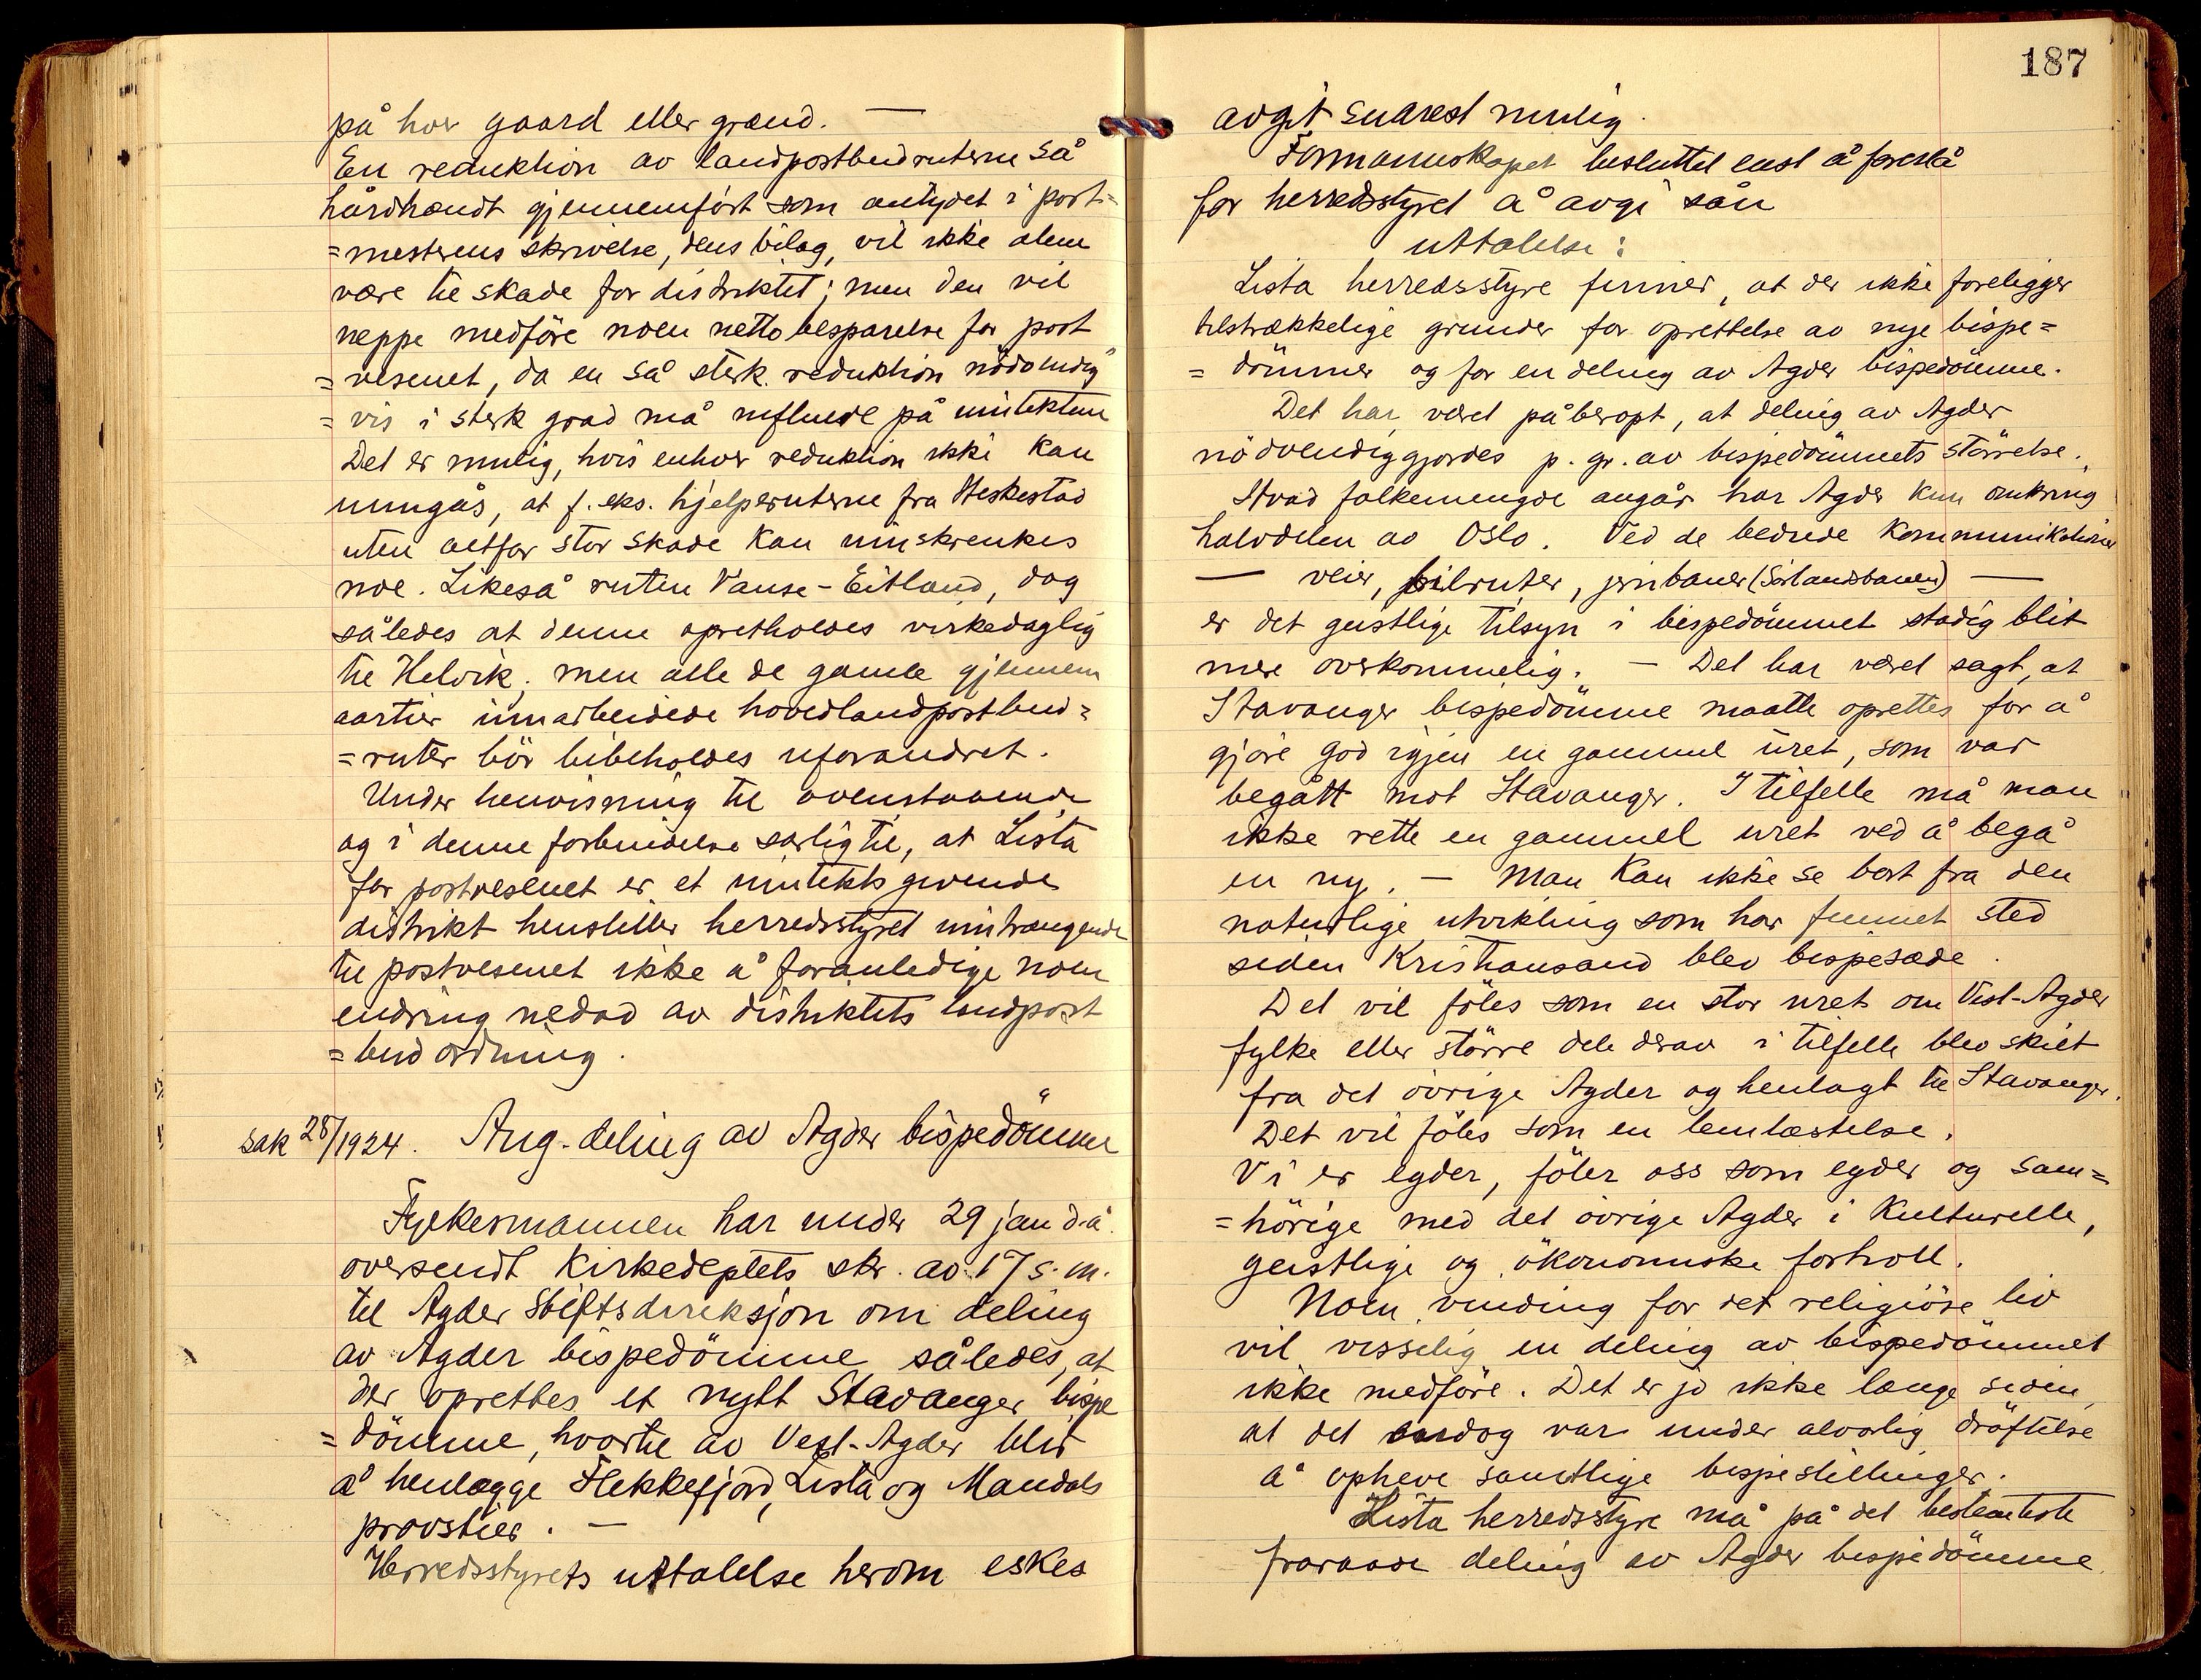 på hver gaard eller grænd. —
En reduktion av landpostbudruterne så
hårdhændt gjennemført som antydet i post-
=mesterens skrivelse, dens bilag, vil ikke alene
være til skade for distriktet; men den vil
neppe medføre noen netto besparelse for post
=vesenet, da en så sterk reduktion nödvendig
=vis i sterk grad må influere på inntektene
Det er mulig, hvis enhver reduktion ikke kan
unngås, at f. eks. hjelperuterne fra Heskestad
uten altfor stor skade kan innskrenkes
noe. Likeså ruten Vanse-Eitland, dog
således at denne opretholdes virkedaglig
til Helvik, men alle de gamle gjennem
aartier innarbeidede hovedlandpostbud=
=ruter bör bibeholdes uforandret.
Under henvisning til ovenstaaende
og i denne forbindelse særlig til, at Lista
for postvesenet er et inntektsgivende
distrikt henstiller herredsstyret inntrængende
til postvesenet ikke å foranledige noen
endring nedad av distriktets landpost
=bud ordning.
Sak 28/1924. Ang. deling av Agder bispedömme
Fylkesmannen har under 29 jan d.å.
oversendt Kirkedeptets skr. av 17 s.m.
til Agder Stiftsdireksjon om deling
av Agder bispedömme således, at
der oprettes et nytt Stavanger bispe
=dömme, hvortil av Vest-Agder blir
å henlægge Flekkefjord, Lista og Mandals
provstier. —
Herredsstyrets uttalelse herom eskes
187
avgit snarest mulig.
Formannskapet besluttet enst å foreslå
for herredsstyret å avgi sån
uttalelse:
Lista herredsstyre finner, at der ikke foreligger
tilstrækkelige grunder for oprettelse av nye bispe=
=dömmer og for en deling av Agder bispedömme.
Det har været påberopt, at deling av Agder
nödvendiggjordes p. gr. av bispedömmets störrelse.
Hvad folkemengde angår har Agder kun omkring
halvdelen av Oslo. Ved de bedrede kommunikationer
— veier, bilruter, jernbaner (Sörlandsbanen) —
er det geistlige tilsyn i bispedömmet stadig blit
mere overkommelig. — Det har været sagt, at
Stavanger bispedömme maatte oprettes for å
gjöre god igjen en gammel uret, som var
begått mot Stavanger. I tilfelle må man
ikke rette en gammel uret ved å begå
en ny. — Man kan ikke se bort fra den
naturlige utvikling som har funnet sted
siden Kristiansand blev bispesæde.
Det vil föles som en stor uret om Vest-Agder
fylke eller större dele derav i tilfelle blev skilt
fra det övrige Agder og henlagt til Stavanger.
Det vil föles som en lemlæstelse.
Vi er egder, föler oss som egder og sam=
=hörige med det övrige Agder i kulturelle,
geistlige og ökonomiske forholl.
Noen vinding for det religiöse liv
vil visselig en deling av bispedömmet
ikke medföre. Det er jo ikke længe siden,
at det endog var under alvorlig dröftelse
å opheve samtlige bispestillinger.
Lista herredsstyre må på det bestemteste
fraraade deling av Agder bispedömme